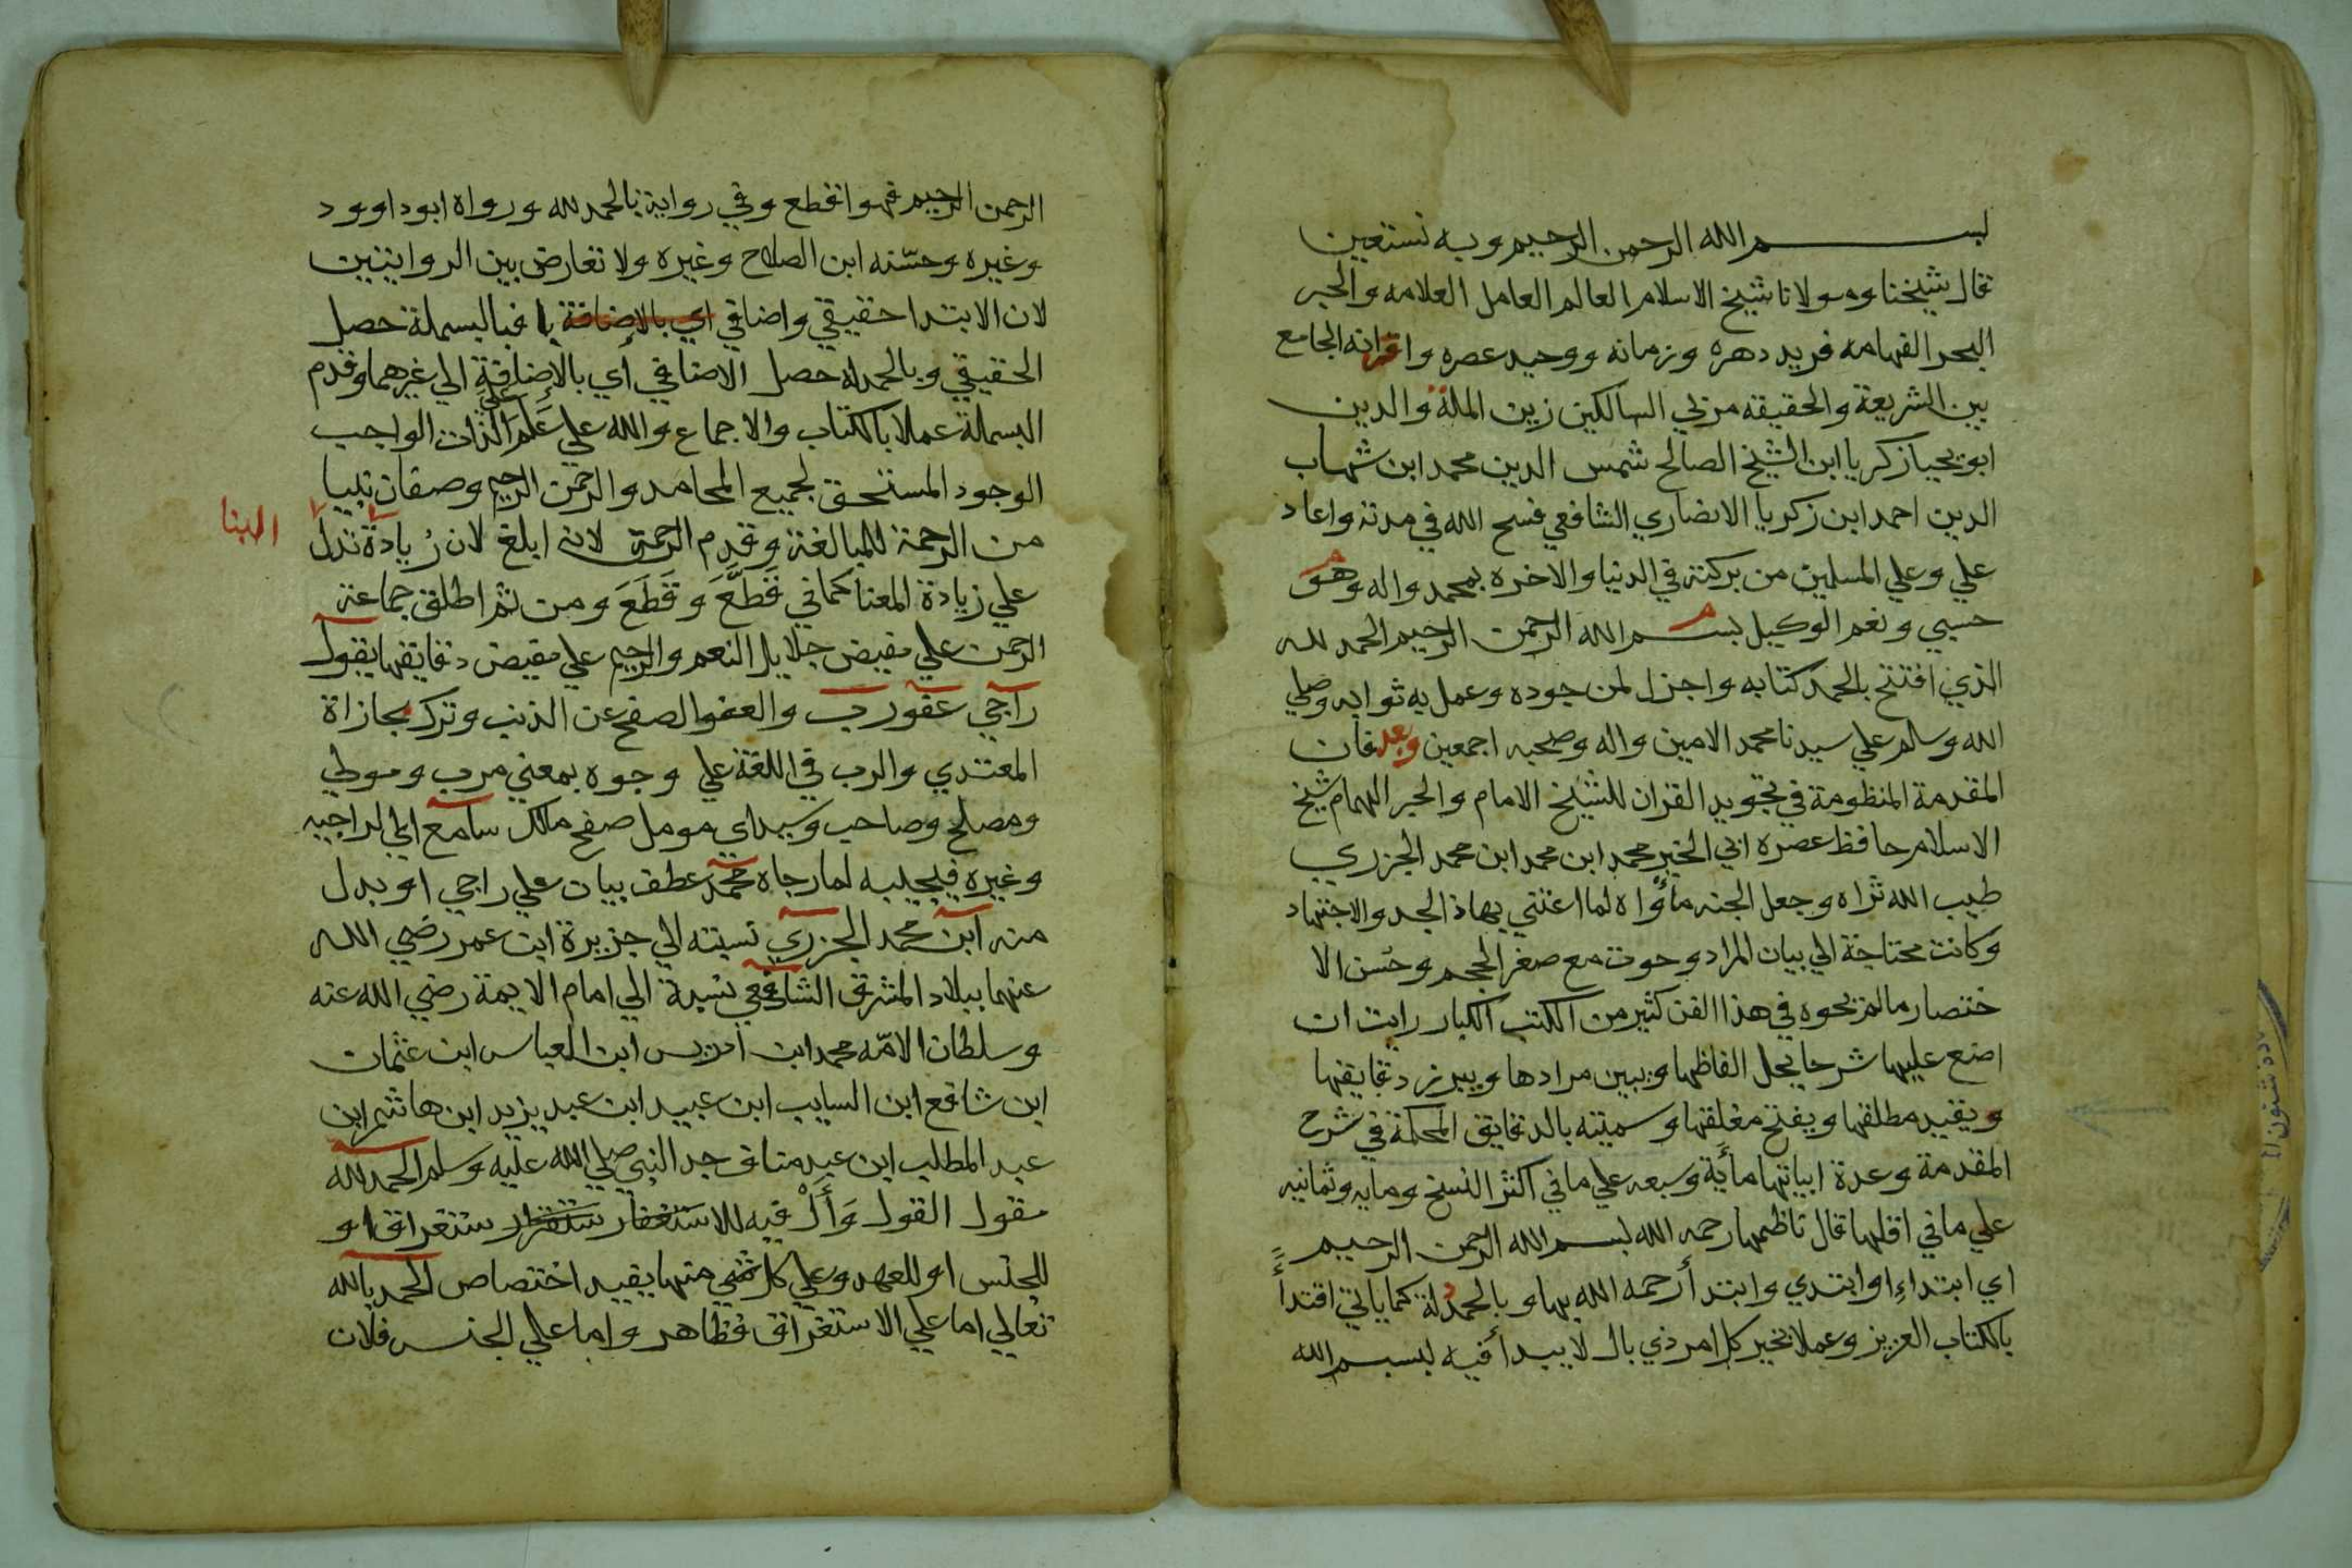 بسم الله الرحمن الرحيم وبه نستعين
قال شيخنا ومولانا شيخ الاسلام العالم العامل العلامه والحبر
البحر الفهامه فريد دهره وزمانه ووحيد عصره واقرانه الجامع
بين الشريعة والحقيقه مربي السالكين زين الملة والدين
ابو يحيا زكريا ابن الشيخ الصالح شمس الدين محمد ابن شهاب
الدين احمد ابن زكريا الانصاري الشافعي فسح الله في مدته واعاد
علي وعلي المسلمين من بركته في الدنيا والاخره بمحمد واله وهو
حسبي ونعم الوكيل بسم الله الرحمن الرحيم الحمد لله
الذي افتتح بالحمد كتابه واجزل لمن جوده وعمل به ثوابه وصلي
الله وسلم علي سيدنا محمد الامين واله وصحبه اجمعين وبعد فان
المقدمة المنظومة في تجويد القران للشيخ الامام والحبر الهمام شيخ
الاسلام حافظ عصره ابي الخير محمد ابن محمد ابن محمد الجزري
طيب الله ثراه وجعل الجنه مأواه لما اعتني بها ذا الجد والاجتهاد
وكانت محتاجة الي بيان المراد وحوت مع صغر الحجم وحسن الا
ختصار مالم يحوه في هذا الفن كثير من الكتب الكبار رايت ان
اضع عليها شرحا يحل الفاظها ويبين مرادها ويبرز دقايقها
ويقيد مطلقها ويفتح مغلقها وسميته بالدقايق المحكمة في شرح
المقدمة وعدة ابياتها مأية وسبعه علي ما في اكثر النسخ ومايه وثمانيه
علي ما في اقلها قال ناظمها رحمه الله بسم الله الرحمن الرحيم
اي ابتداء او ابتدي وابتدأ رحمه الله بها وبالحمدلة كما ياتي اقتدأ
بالكتاب العزيز وعملا بخبر كل امر ذي بال لا يبدأ فيه ببسم الله
الرحمن الرحيم فهو اقطع وفي رواية بالحمد لله ورواه ابو داوود
وغيره وحسّنه ابن الصلاح وغيره ولا تعارض بين الروايتين
لان الابتدا حقيقي واضافي اي بالاضافة با فبالبسملة حصل
الحقيقي وبالحمدلة حصل الاضافي اي بالإضافة الي غيرهما وقدم
البسملة عملا بالكتاب والاجماع والله علي عَلَم علي الذات الواجب
الوجود المستحق لجميع المحامد والرحمن الرحيم وصفان بنيا
من الرحمة للمبالغة وقدم الرحمن لانه ابلغ لان زيادة تدل
البنا
علي زيادة المعنا كما في قَطَعَ وقَطَّعَ ومن ثم اطلق جماعة
الرحمن علي مفيض جلايل النعم والرحيم علي مفيض دقايقها يقول
راجي عفو رب والعفو الصفح عن الذنب وترك مجازاة
المعتدي والرب في اللغة علي وجوه بمعني مرب ومولي
ومصلح وصاحب وسيد اي مومل صفح مالك سامع اي لراجيه
وغيره فيجيبه لما رجاه محمد عطف بيان علي راجي او بدل
منه ابن محمد الجزري نسبته الي جزيرة ابن عمر رضي الله
عنهما ببلاد المشرق الشافعي نسبة الي امام الايمة رضي الله عنه
وسلطان الامّه محمد ابن ادريس ابن العباس ابن عثمان
ابن شافع ابن السايب ابن عبيد ابن عبد يزيد ابن هاشم ابن
عبد المطلب ابن عبد مناف جد النبي صلي الله عليه وسلم الحمد لله
مقول القول وَأَلْ فيه للاستغفار ستغراق او
للجنس او للعهد وعلي كل منها يفيد اختصاص الحمد بالله
تعالي اما علي الاستغراق فظاهر واما علي الجنس فلان